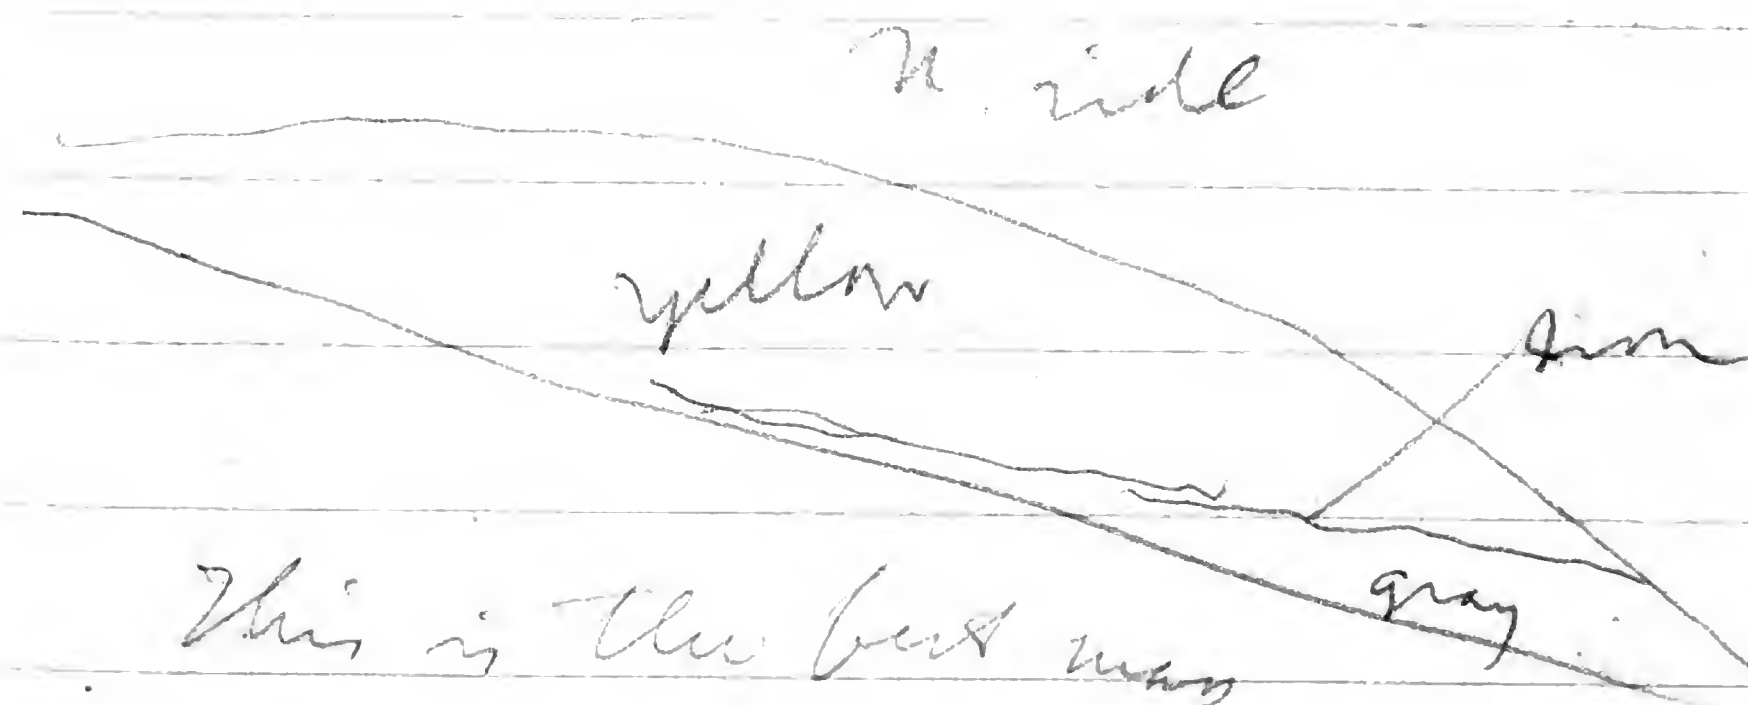 N. side
yellow
iron
gray
This is the best